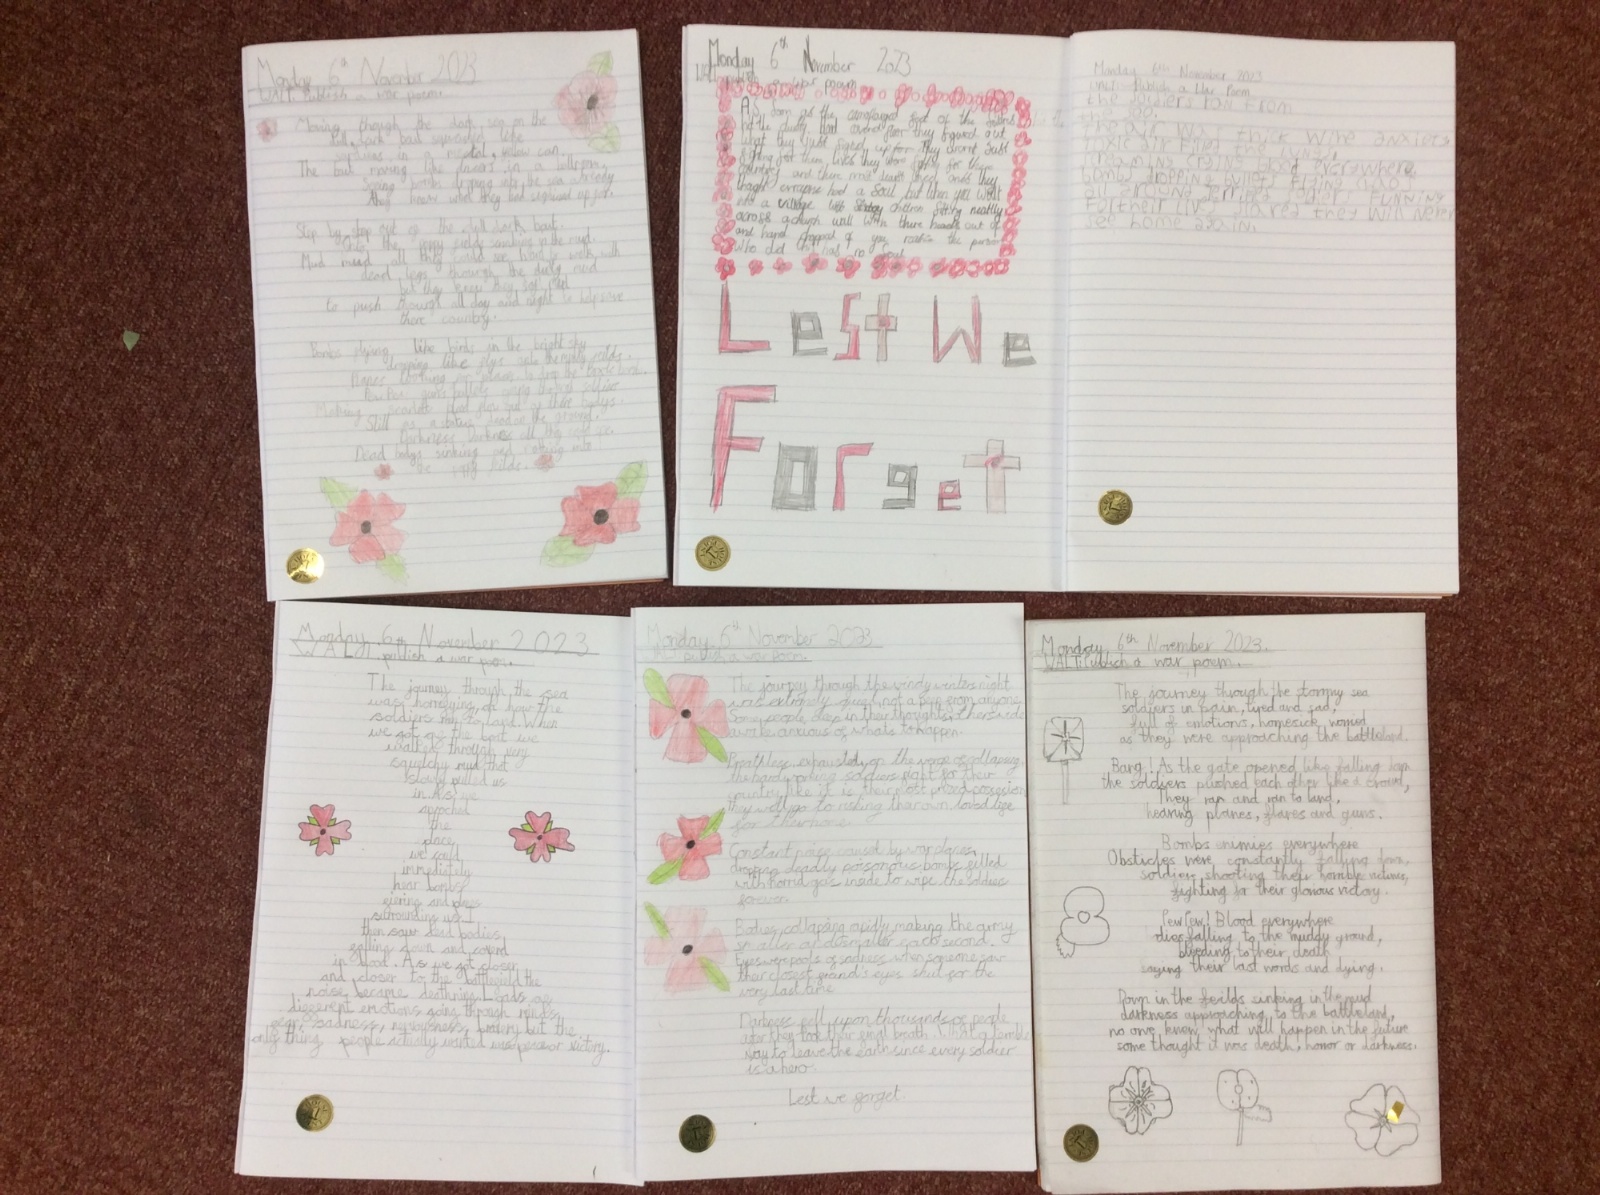 Monday 6th November 2023
WALT: Publish a war poem.
Moving through the dark sea on the
dull, dark boat squashed like
sardines in a metal, yellow can.
The boat moving like dancers in a
bombs dropping into the sea already
they knew what they had signed up for.
Step by step out of the dull dark boat.
the poppy fields in the mud.
Mud mud all they could see, hard to walk with
dead legs through the dusty mud
but they knew they had
to push through all day and night to help save
there country.
Bombs flying like birds in the bright sky
dropping like flys
Planes to drop the
Pew Pew guns bullets
Making scarlett blood flow out of there bodys.
Still as a statue dead on the ground.
Darkness Darkness all they could see.
Dead bodys sinking and rotting into
the poppy feilds.
Monday 6th November 2023
WALT publish a war poem
As soon as the camoflaged feet of the
hit the dusty, land over they figured out
what they just signed up for they wernt just
fighting for them, lives they were fighting for there
country and there most loved ones they
thaght evreyone had a Soul but then you walk
into a village with children Sitting neatly
across a church wall with there heads out of
and hand the person
who did this had no Soul
Lest We
Forget
Monday 6th November 2023
WALT: Publish a War Poem
the soldiers ran from
the sea.
The air was thick with anxiety
toxic air filled the lungs,
Screaming crying blood everywhere
bombs dropping bullets flying
all around terrified soldiers running
for their lives scared they will never
see home again.
Monday 6th November 2023
WALT publish a war poem.
The journey through the sea
was horrifying, of how the
soldiers to land. When
we got off the boat we
walked through very
squelchy mud that
slowly pulled us
in. As we
aproched
the
place
we could
immediately
hear bombs
firing and planes
surrounding us. I
then saw dead bodies
falling down and coverd
in blood. As we got closer
and closer to the battlefield the
noise became deafning. Loads of
different emotions going through minds,
fear, sadness, nervousness, bravery but the
only thing people actually wanted was peace or victory.
Monday 6th November 2023
WALT publish a war poem
The journey through the windy winters night
was extremely quiet, not a peep from anyone.
Some people deep in their thoughts, others wide
awake anxious of whats to happen.
Breathless, exhausted, on the verge of collapsing,
the hardworking soldiers fight for their
country like it is their most prized possession
they will go to risking their own loved life
for their home.
Constant noise caused by war planes,
dropping deadly poisonous bombs filled
with horrid gas inside to wipe the soldiers
forever.
Bodies collapsing rapidly, making the army
smaller and smaller each second.
Eyes were pools of sadness when someone saw
their closest friend's eyes shut for the
very last time.
Darkness fell upon thousands of people
after they took their final breath. What a terrible
way to leave the earth since every soldier
is a hero.
Lest we forget.
Monday 6th November 2023.
WALT: Publish a war poem.
The journey through the stormy sea
soldiers in pain, tyred and sad,
full of emotions, homesick, worried
as they were approaching the battleland.
Bang! As the gate opened like falling
the soldiers pushed each other like a crowd,
They ran and ran to land,
hearing planes, flares and guns.
Bombs enemies everywhere
Obsticles were constantly falling down,
soldiers shooting their horrible victims,
fighting for their glorious victory.
Pew Pew! Blood everywhere
falling to the muddy ground,
bleeding to their death
saying their last words and dying.
Down in the feilds sinking in the mud
darkness approaching to the battleland,
no one knew what will happen in the future
some thought it was death, honor or darkness.